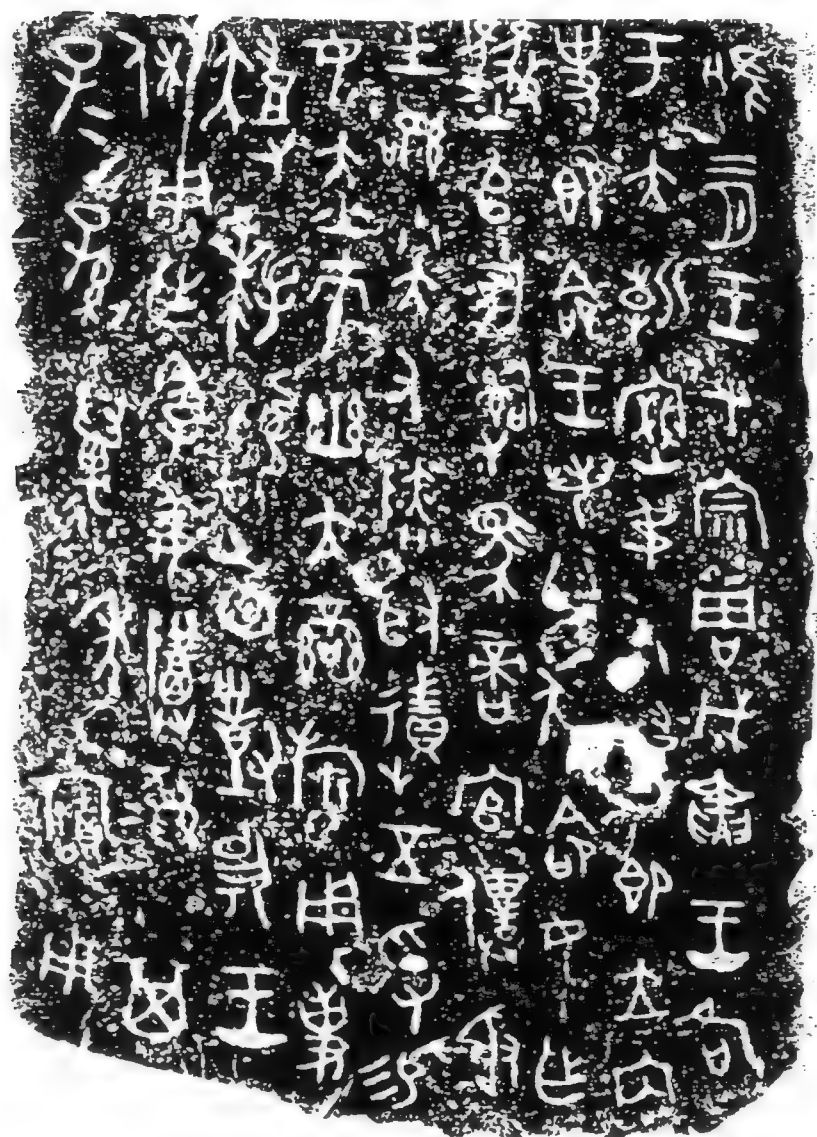 唯三月王才宗周戊寅王各
于大朝密叔右趩即立內
史即命王若曰趩命女乍
豳𠂤冢𤔲馬啻官僕射
士訊小大又隣取徵五寽易
女赤巿幽亢䜌旂用事
趩拜稽首對揚王
休用乍季姜尊彝其
子子孫孫萬年寶用